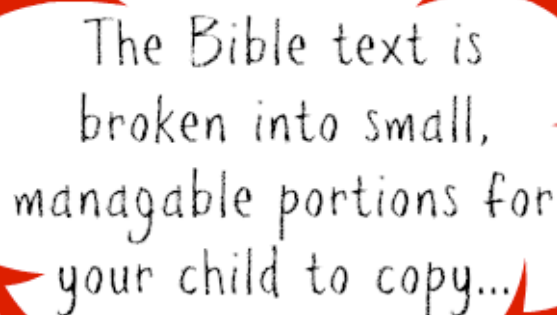 The Bible text is
broken into small,
managable portions for
your child to copy...